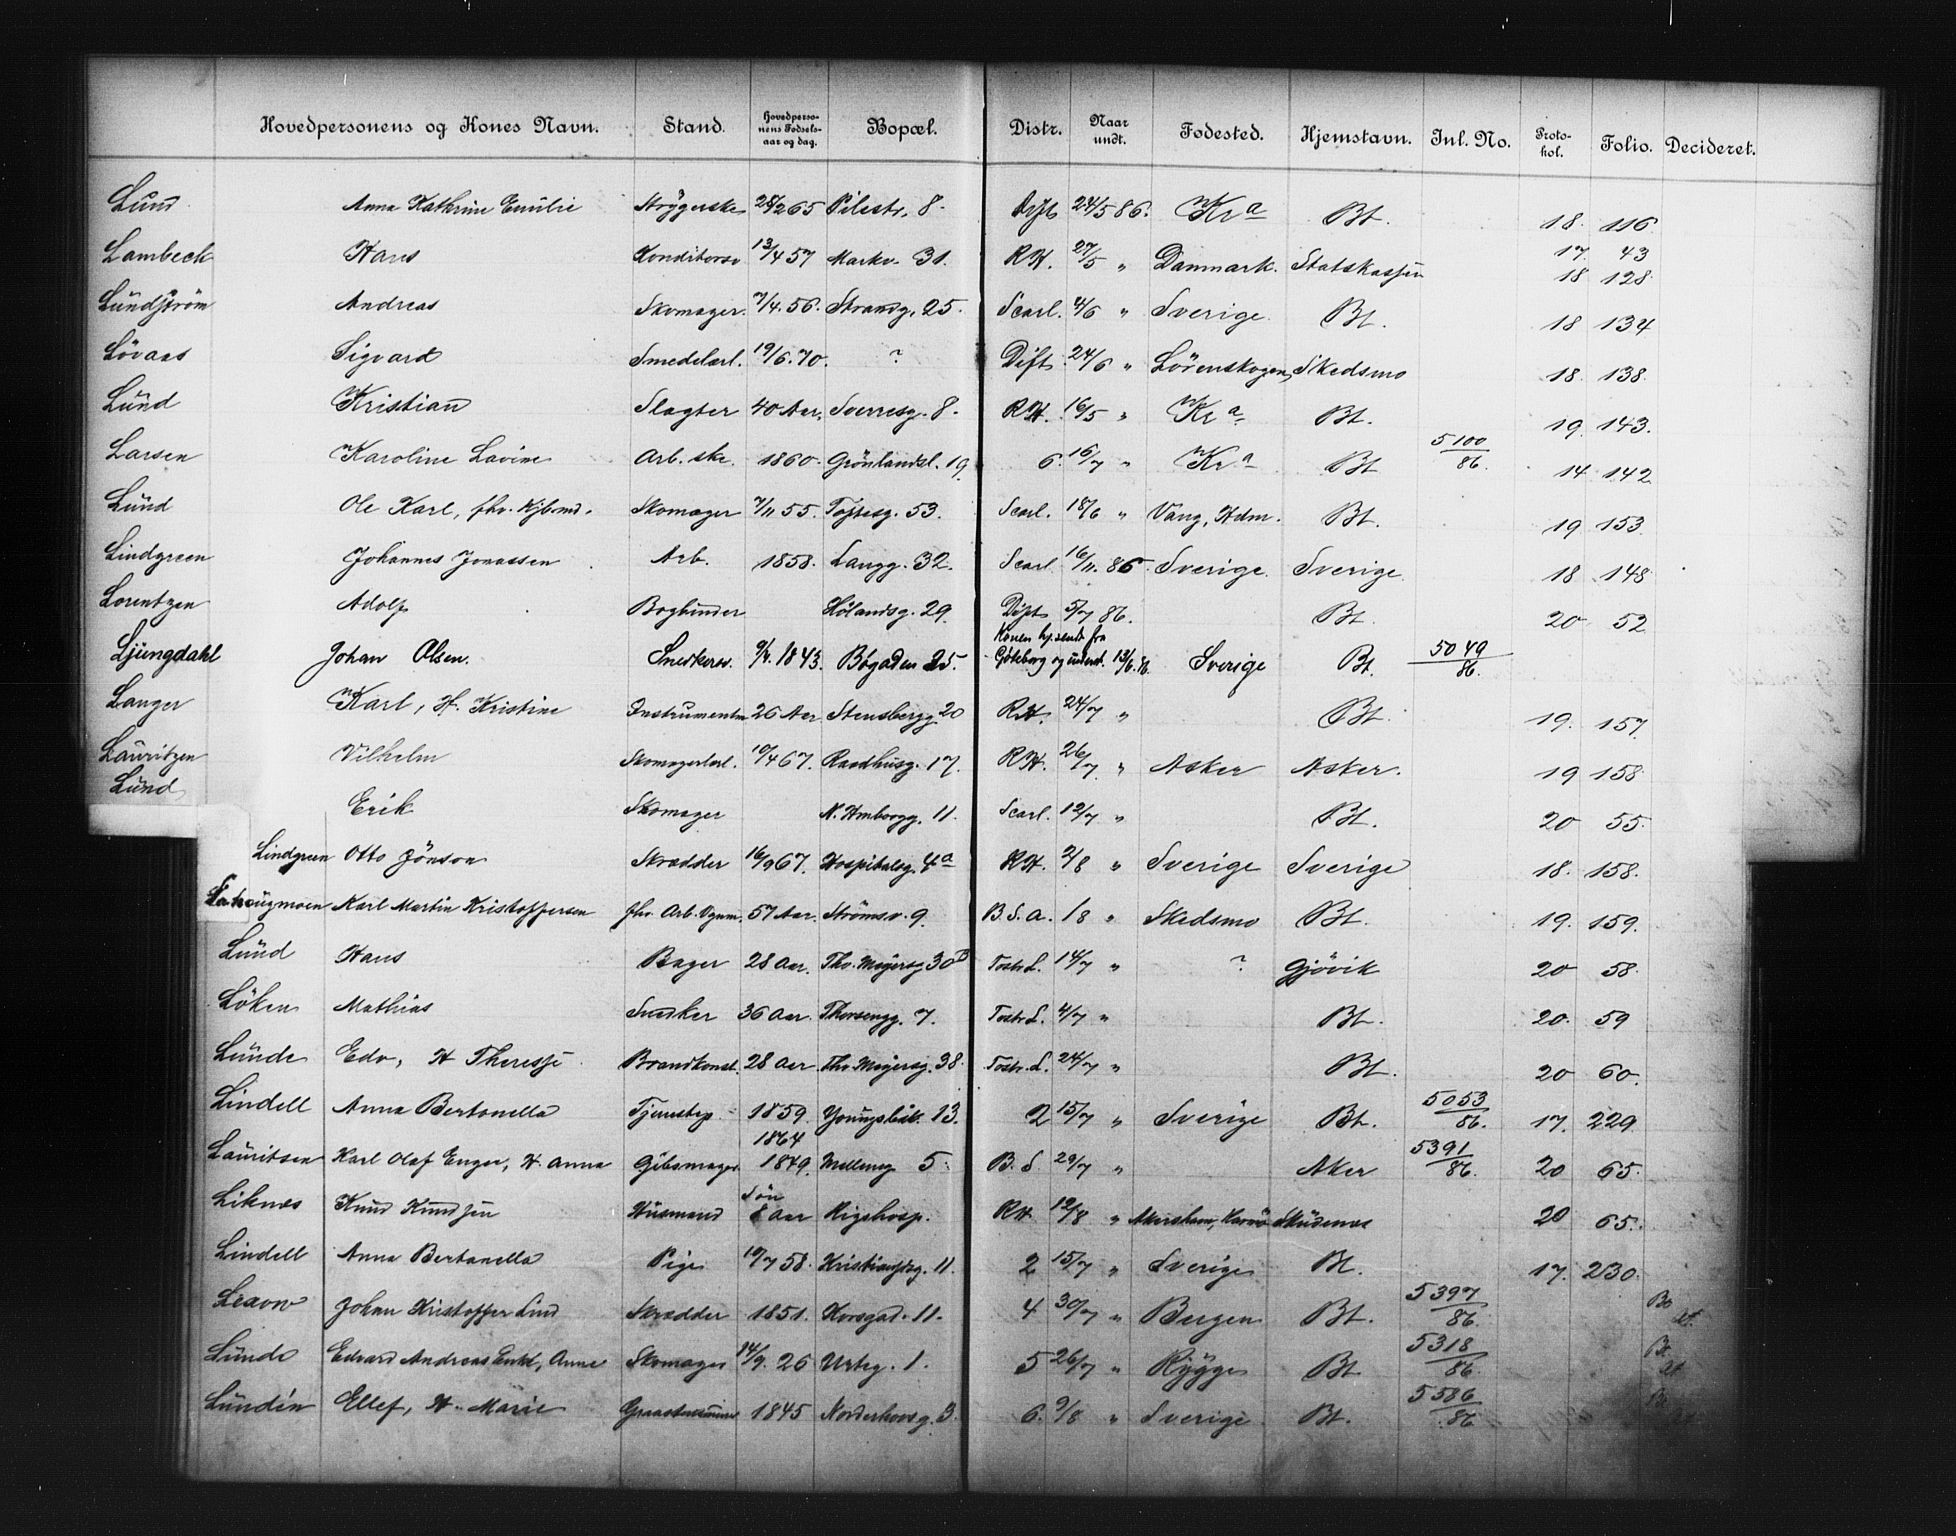 Hovedpersonens og Kones Navn. Stand. Hovedperso-nens Fødsels-aar og dag. Bopæl. Distr. Naar undt. Fødested. Hjemstavn. Inl. No. Proto-kol. Folio. Decideret.
Lund Anna Kathrine Emilie Strygerske 28/2 65 Pilestr. 8. 24/5 86. Kra Bt. 18. 116
Lambeck Hans Konditorsv 13/4 57 Markv. 31. RH. 27/5 " Danmark. Statskassen 17. 43 18 128.
Lundström Andreas Skomager. 7/4. 56. Strandg. 25. Scarl. 4/6 " Sverige. Bt. 18 134
Lövaas Sigvard Smedelærl. 19/6. 70. ? Dift. 24/6 " Lörenskogen, Skedsmo 18. 138.
Lund Kristian Slagter 40 Aar. Sverresg. 8. RH. 16/5 " Kra Bt. 19. 143.
Larsen Karoline Lavine Arb. ske. 1860. Grönlandsl. 19. 6. 16/7 " Kra Bt 5100/86. 14 142
Lund Ole Karl, fhv. Kjbmd. Skomager 7/11 55. Tøjtesg. 53. Scarl. 18/6 " Vang, Hdm. Bt. 19 153
Lindgreen Johannes Jonassen Arb. 1858. Langg. 32. Scarl. 16/11. 86. Sverige. Sverige 18 148
Lorentzen Adolf Bogbinder Hölandsg. 29. Dift 5/7 86. Bt. 20 52
Ljungdahl Johan Olsen. Snedkersv. 9/4. 1843. Bøgaden 25. Konen hj.sendt fra Göteborg og underst. 12/6. 86. Sverige Bt. 5049/86.
Langer Karl, H. Kristine Instrumentm 26 Aar Stensbergg. 20 RH. 24/7 " Bt. 19. 157.
Lauritzen Vilhelm Skomagerlærl. 10/4 67. Raadhusg. 17. RH. 26/7. " Asker Asker. 19 158
Lund Erik Skomager N. Hmborgg. 11. Scarl. 12/7 " Bt. 20 55.
Lindgreen Otto Jönson Skrædder 16/9 67. Hospitalsg. 4a RH. 2/8 " Sverige Sverige 18. 158.
Karl Martin Kristoffersen fhv. Arb. Vgnm. 57 Aar. Strömsv. 9. B. S. A. 1/8 " Skedsmo Bt. 19. 159.
Lund Hans Bager 28 Aar. Thv. Meyersg 30B Tostr. L. 14/7 " ? Gjövik 20 58.
Löken Mathias Snedker 36 Aar. Thorsengg. 7. Tostr L. 4/7 " Bt. 20. 59
Lunde Edv, H Theresje Brandkonst. 28 Aar Thv. Meyersg. 38. Tostr. L. 24/7 " Bt. 20 60.
Lindell Anna Bertonella Tjenestep 1859. Youngsbak. 13. 2 15/7 " Sverige Bt. 5053/86. 17. 229
Lauritsen Karl Olaf Enger, H. Anna Gibsmager 1864 1849. Mølleng 5. B. S. 29/7 " Aker 5391/86. 20 65.
Liknes Knud Knudsen Husmand Søn 8 Aar Rigshosp. RH. 12/8 " Akershavn, Karmö Skudenes 20 65.
Lindell Anna Bertanella Pige 10/7 58. Kristiansg. 11. 2 15/7 " Sverige Bt. 17. 230.
Johan Kristoffer Lind Skrædder 1851. Korsgad. 11. 4 30/7 " Bergen Bt. 5397/86.
Lunde Edvard Andreas Enkl, Anne Skomager 14/9. 26 Urteg. 1. 5 26/7 " Rygge Bt 5318/86.
Lundin Ellef, H. Marie 1845 Norderhovsg. 3. 6. 9/8 " Sverige Bt. 5586/86